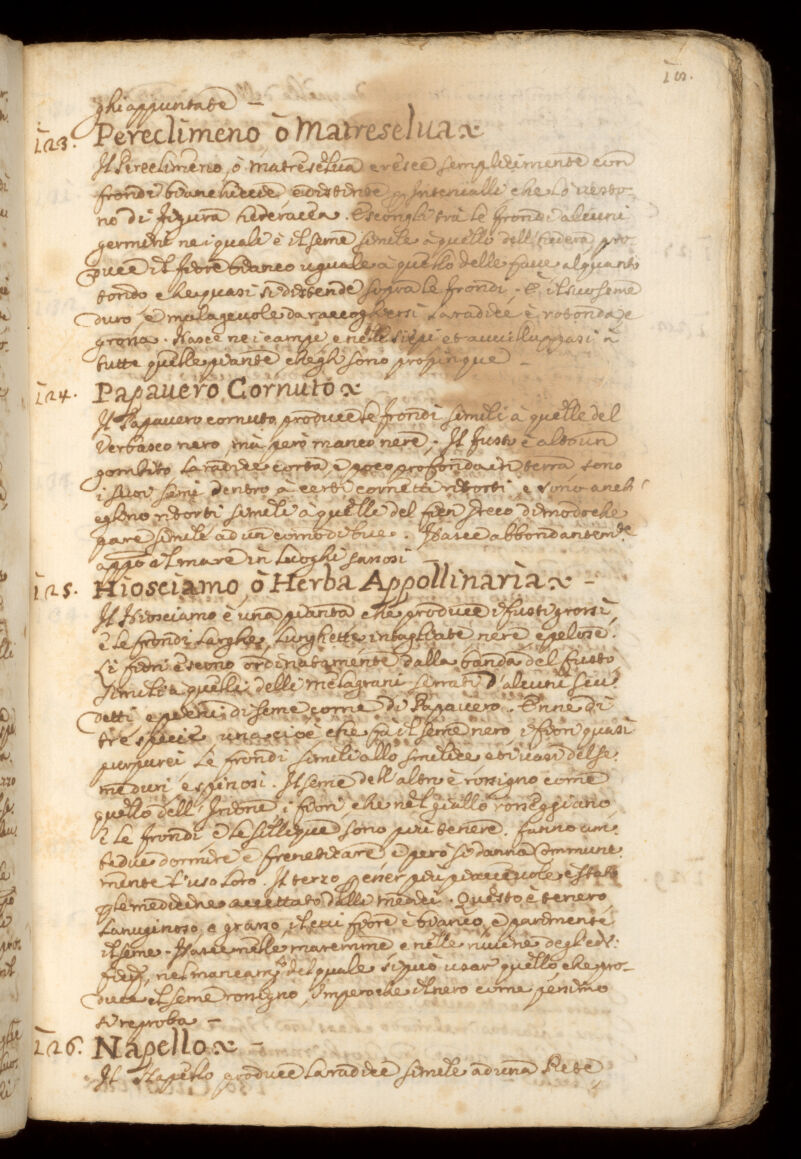 18.
ghi appuntate –
123. Pereclimeno, ò Matreselua
Il Pereclimeno, ò Matreselua cresce semplicimente con
frondi bianchiccie, e distinte p interualli che lo uesto-
no di figura hederacea. Escongli trà le frondi alcuni
germini ne i quali è il seme simile à quello dell'hedera, pro-
duce il fiore bianco uguale à quello delle faue alquanto
tondo e che quasi si distende sopra le frondi. E' il suo seme
duro, e malageuole da raccogliersi la radice è rotonda, e
grossa. Nasce ne i campi, e nelle siepi et auuiluppasi à
tutte quelle piante che gli sono propinque –
124. Papauero Cornuto
Il Papauero cornuto produce le frondi simili à quelle del
Verbasco nero, mà però manco nere. Il fusto è alto un
gombito la radice corta, e poco profonda in terra sono
i suoi semi dentro à certi cornetti ritorti, e sono anch'
eglino ritorti simili à quelle del fien greco di modo che
pare simile ad un corno di bue. Nasce abbondantemte
appo il mare in luoghi sassosi
125. Hiosciamo, ò Herba Appollinaria –
Il Hiosciamo è una pianta che produce i fusti grossi,
E le frondi larghe, lunghette, intagliate nere e pelose.
Li fiori escono ordinatamente dalla banda del fusto
simili à quelli delli melagrani serrati d'alcuni scu-
detti e pieni di seme come di Papauero. Enne di
tre specie una cioè che fà il seme nero i fiori quasi
purpurei le frondi simili allo smilice et i uasi del se-
me duri, e spinosi. Il seme dell'altro è rossigno come
quello dell'Irione, i fiori, che nel giallo rosseggiano
E le frondi e le sillique sono più tenere. fanno am-
bedue dormire e freneticare e però si danna commune-
mente l'uso loro. Il terzo p esser più piaceuole è stato
p le medicine accettato dalli medici. Questo è tenero
lanuginoso, e grasso, il cui fiore è bianco, e parimente
il seme. Nasce nelle maremme e nelle ruuine degli edi-
fitij, nel mancamto del quale si può usar quello, che pro-
duce il seme rossigno, Imperoche il nero come pessimo
si reproba –
126. Napello –
Il Napello produce la radice simile ad una Rete